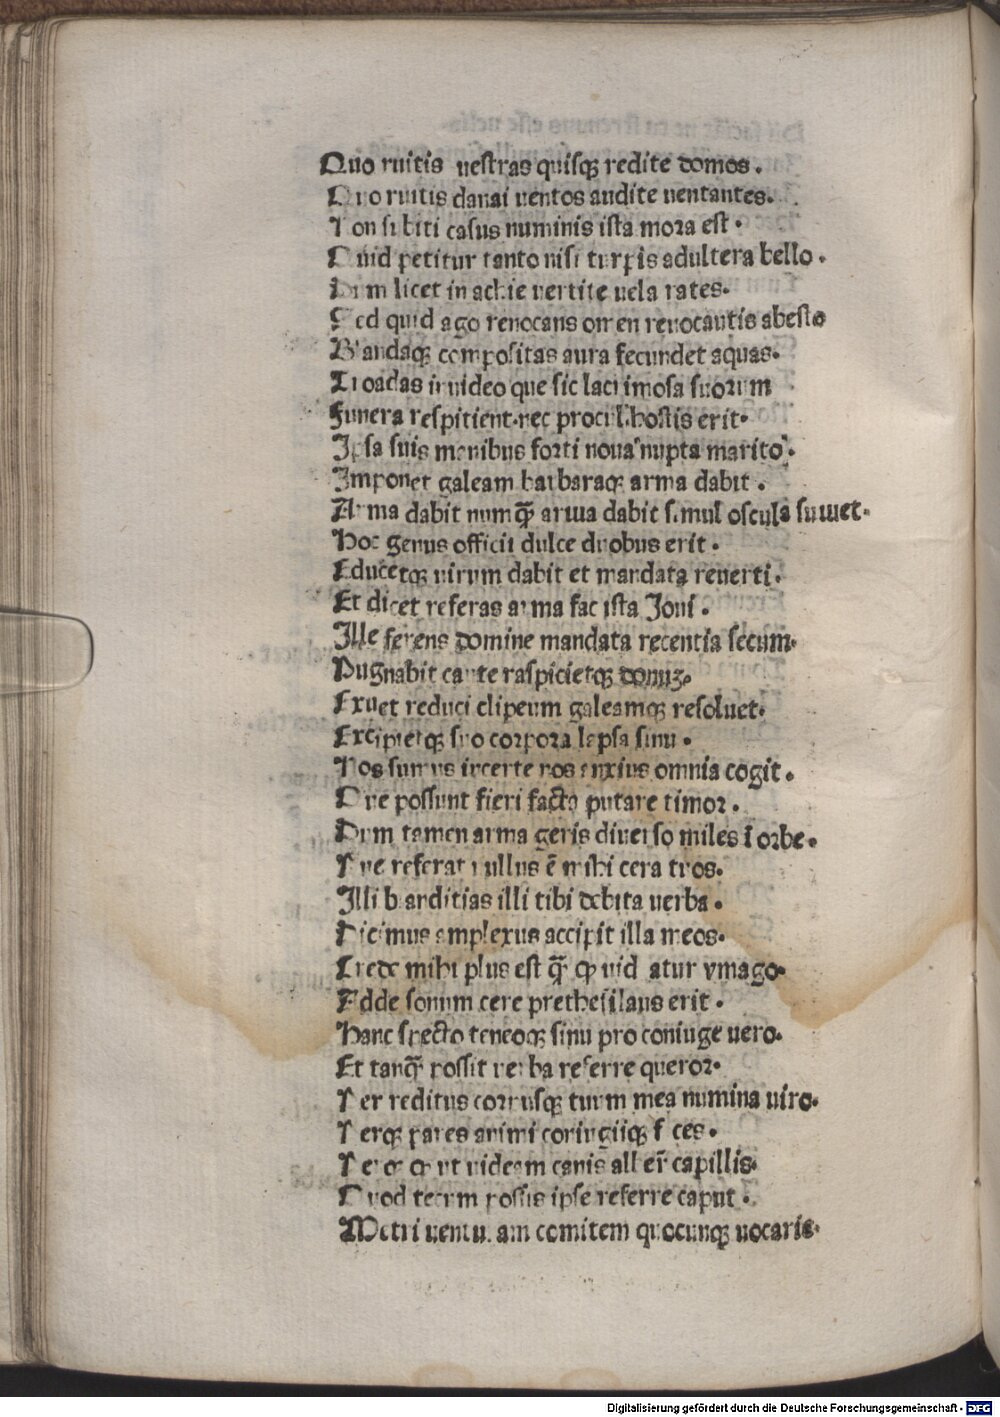 Quo ruitis uestras quisqꝫ redite domos.
Quo ruitis danai uentos audite uentantes.
Non subiti casus numinis ista mora est.
Quid petitur tanto nisi turpis adultera bello.
Dum licet in achie uertite uela rates.
Sed quid ago reuocans omen reuocantis abesto
Blandaqꝫ compositas aura fecundet aquas.
Troadas inuideo que sic lacrimosa suorum
Funera respitient.nec procul hostis erit.
Ipsa suis manibus forti noua nupta marito.
Imponet galeam barbaraqꝫ arma dabit.
Arma dabit numqᷓ arma dabit simul oscula sumet.
Hoc genus officii dulce duobus erit.
Educetqꝫ uirum dabit et mandata reuerti.
Et dicet referas arma fac ista Joui.
Ille ferens domine mandata recentia secum.
Pugnabit caute raspicietqꝫ domuꝫ.
Exuet reduci clipeum galeamqꝫ resoluet.
Excipietqꝫ suo corpora lapsa sinu.
Nos sumus incerte nos anxius omnia cogit.
Que possunt fieri facta putare timor.
Dum tamen arma geris diuerso miles ī orbe.
Que referat uullus ē mihi cera tros.
Illi blanditias illi tibi debita uerba.
Dicimus amplexus accipit illa meos.
Crede mihi plus est qᷓ qꝙ uid atur ymago.
Adde sonum cere prethesilaus erit.
Hanc specto teneoqꝫ sinu pro coniuge uero.
Et tanqᷓ possit uerba referre queror.
Per reditus corpusqꝫ tuum mea numina uiro.
Perqꝫ pares animi coniugiiqꝫ faces.
ut uideam canis capillis.
Quod tecum possis ipse referre caput.
Metri uenturam comitem quocunqꝫ uocaris.
Digitalisierung gefördert durch die Deutsche Forschungsgemeinschaft - DFG